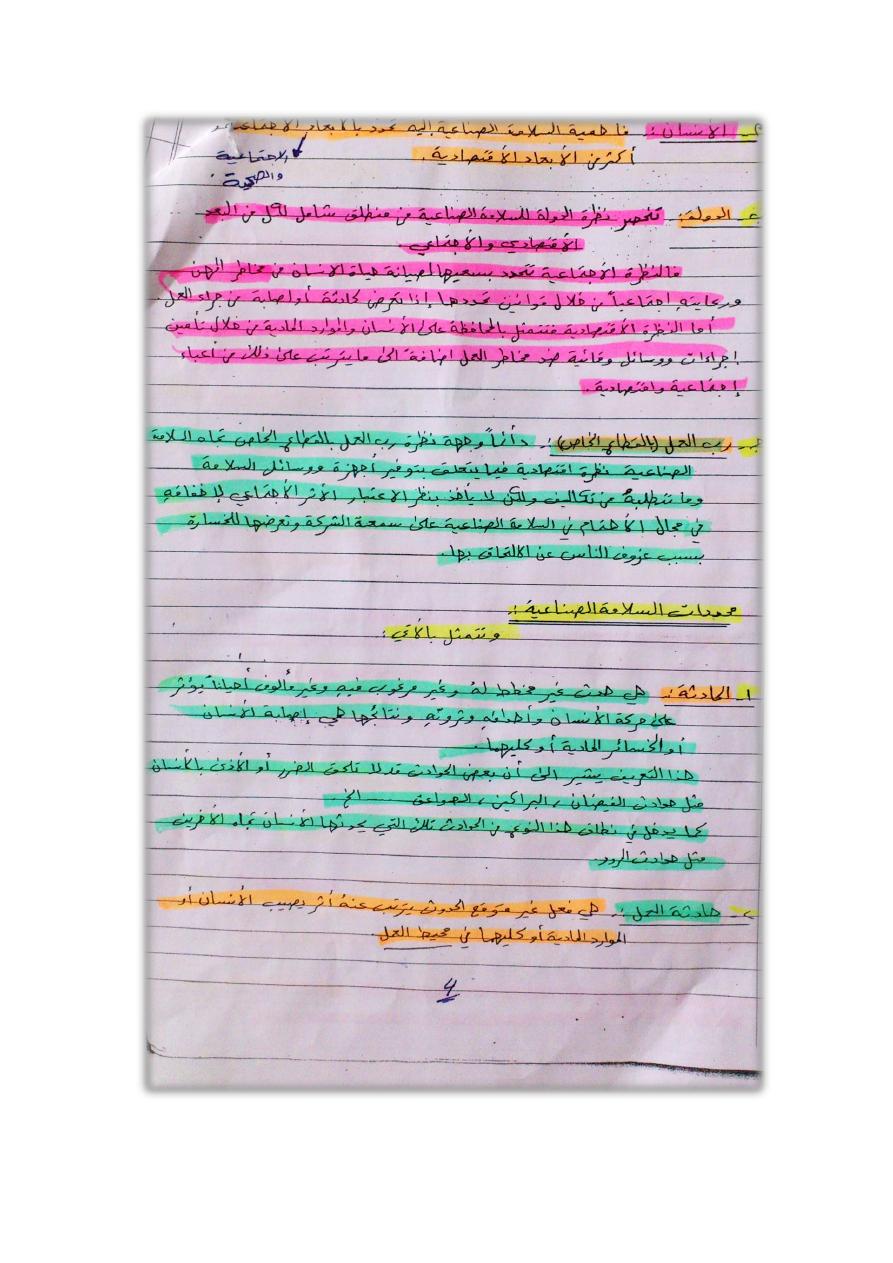 الإنسان: فأهمية السلامة الصناعية إليه تحدد بالأبعاد الاجتماعية
أكثر من الأبعاد الاقتصادية.
الاجتماعية
والصحية
الدولة: تنحصر نظرة الدولة للسلامة الصناعية من منطلق شامل لكل من البعد
الاقتصادي والاجتماعي
فالنظرة الاجتماعية تتحدد بسعيها لصيانة حياة الانسان من مخاطر المهن
ورعايته اجتماعياً من خلال قوانين تحددها إذا تعرض لحادثة أو إصابة من جراء العمل.
أما النظرة الاقتصادية فتتمثل بالمحافظة على الأنسان والموارد المادية من خلال تأمين
إجراءات ووسائل وقائية ضد مخاطر العمل اضافة الى ما يترتب على ذلك من أعباء
إجتماعية واقتصادية.
رب العمل (بالقطاع الخاص): دائماً وجهة نظرة رب العمل بالقطاع الخاص تجاه السلامة
الصناعية نظرة اقتصادية فيما يتعلق بتوفير أجهزة ووسائل السلامة
وما تتطلبهُ من تكاليف ولكن لا يأخذ بنظر الاعتبار الأثر الأجتماعي لإخفاقهِ
في مجال الأهتمام في السلامة الصناعية على سمعة الشركة وتعرضها للخسارة
بسبب عزوف الناس عن الالتحاق بها.
محددات السلامة الصناعية:
وتتمثل بالآتي:
١- الحادثة: هي حدث غير مخطط لهُ وغير مرغوب فيهِ وغير مألوف أحياناً يؤثر
على حركة الأنسان وأهدافهِ وثروتهِ ونتائجها هي إصابة الأنسان
أو الخسائر المادية أو كليهما.
هذا التعريف يشير الى أن بعض الحوادث قد لا تلحق الضرر أو الأذى بالأنسان
مثل حوادث الفيضان، البراكين، الصواعق ... الخ.
كما يدخل في نطاق هذا النوع من الحوادث تلك التي يحدثها الأنسان تجاه الآخرين
مثل حوادث المرور.
٢- حادثة العمل: هي فعل غير متوقع الحدوث يترتب عنهُ أثر يصيب الأنسان أو
الموارد المادية أو كليهما في محيط العمل.
4